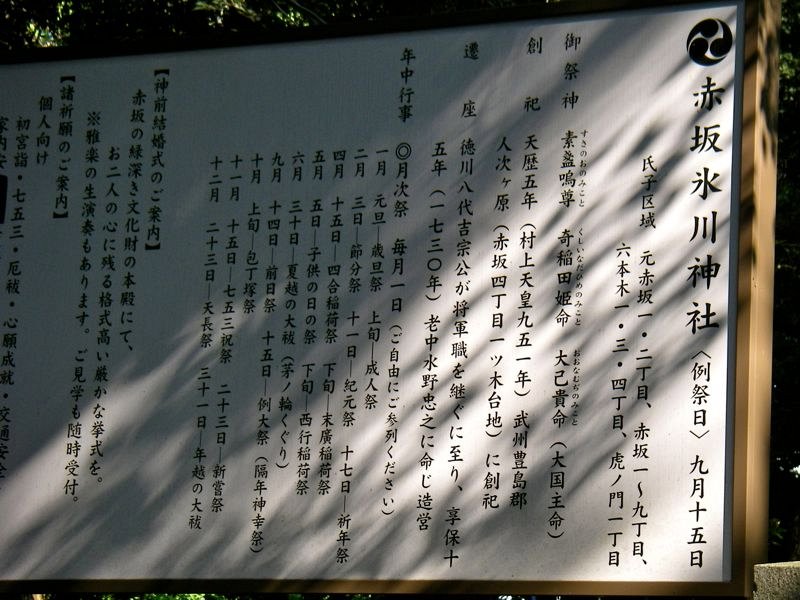 赤坂氷川神社〈例祭日〉九月十五日
氏子区域 元赤坂一・二丁目、赤坂一～九丁目、
六本木一・三・四丁目、虎ノ門一丁目
御祭神 素盞嗚尊 奇稲田姫命 大己貴命（大国主命）
すさのおのみこと くしいなだひめのみこと おおなむぢのみこと
創祀 天歴五年（村上天皇九五一年）武州豊島郡
人次ヶ原（赤坂四丁目一ツ木台地）に創祀
遷座 徳川八代吉宗公が将軍職を継ぐに至り、享保十
五年（一七三〇年）老中水野忠之に命じ造営
年中行事 ◎月次祭 毎月一日（ご自由にご参列ください）
一月 元旦―歳旦祭 上旬―成人祭
二月 三日―節分祭 十一日―紀元祭 十七日―祈年祭
四月 十五日―四合稲荷祭 下旬―末廣稲荷祭
五月 五日―子供の日の祭 下旬―西行稲荷祭
六月 三十日―夏越の大祓（茅ノ輪くぐり）
九月 十四日―前日祭 十五日―例大祭（隔年神幸祭）
十月 上旬―包丁塚祭
十一月 十五日―七五三祝祭 二十三日―新嘗祭
十二月 二十三日―天長祭 三十一日―年越の大祓
【神前結婚式のご案内】
赤坂の緑深き文化財の本殿にて、
お二人の心に残る格式高い厳かな挙式を。
※雅楽の生演奏もあります。ご見学も随時受付。
【諸祈願のご案内】
個人向け
初宮詣・七五三・厄祓・心願成就・交通安全
家内安